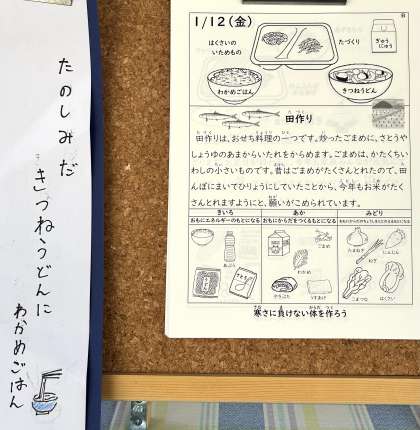 たのしみだ
きつねうどんに
わかめごはん
1/12(金)
はくさいの
いためもの
たづくり
ぎゅう
にゅう
わかめごはん
きつねうどん
田作り
田作りは、おせち料理の一つです。炒ったごまめに、さとうや
しょうゆのあまからいたれをからめます。ごまめは、かたくちい
わしの小さいものです。昔はごまめがたくさんとれたので、田
んぼにまいてひりょうにしていたことから、今年もお米がたく
さんとれますようにと、願いがこめられています。
きいろ
おもにエネルギーのもとになる
あか
おもにからだをつくるもとになる
みどり
あぶら
ごまめ
わかめ
かまぼこ
うすあげ
たまねぎ
にんじん
ねぎ
こまつな
はくさい
寒さに負けない体を作ろう